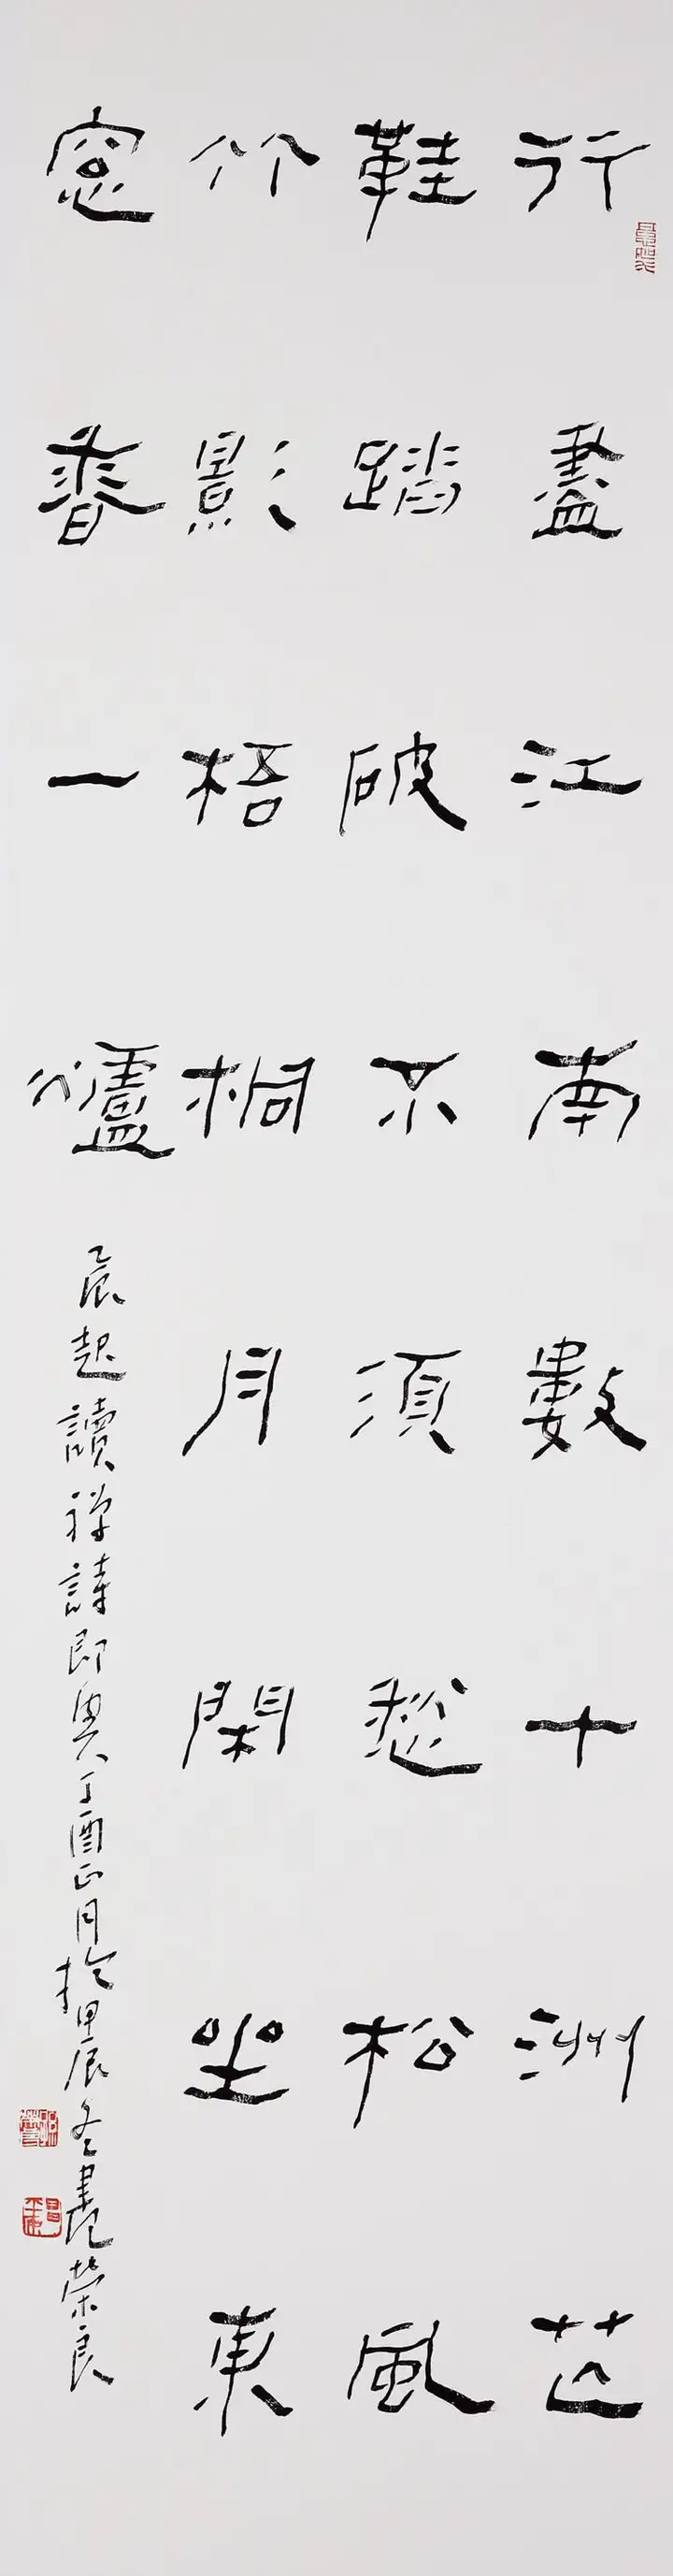 行盡江南數十洲芒
鞋踏破不須愁松風
竹影梧桐月閑坐東
窓香一爐
晨起讀禪詩即興丁酉正月於甲辰冬畫榮良